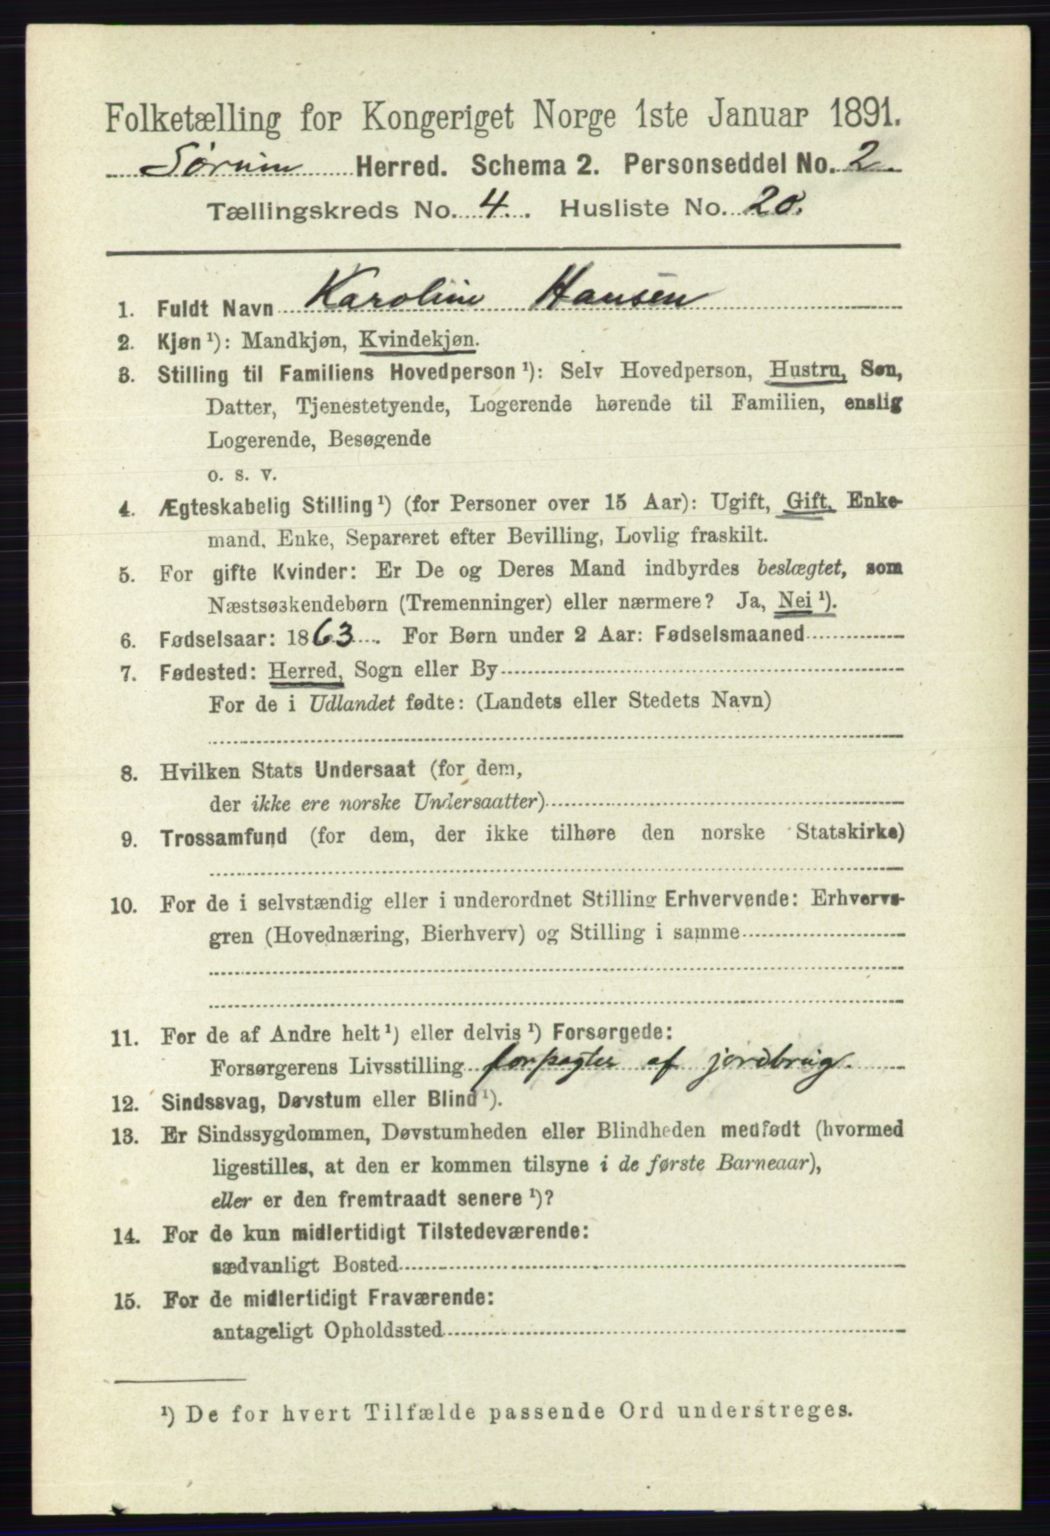 Folketælling for Kongeriget Norge 1ste Januar 1891.
Sørum Herred. Schema 2. Personseddel No. 2.
Tællingskreds No. 4. Husliste No. 20.
1. Fuldt Navn Karoline Hansen
2. Kjøn ¹): Mandkjøn, Kvindekjøn.
3. Stilling til Familiens Hovedperson ¹): Selv Hovedperson, Hustru, Søn,
Datter, Tjenestetyende, Logerende hørende til Familien, enslig
Logerende, Besøgende
o. s. v.
4. Ægteskabelig Stilling ¹) (for Personer over 15 Aar): Ugift, Gift, Enke-
mand, Enke, Separeret efter Bevilling, Lovlig fraskilt.
5. For gifte Kvinder: Er De og Deres Mand indbyrdes beslægtet, som
Næstsøskendebørn (Tremenninger) eller nærmere? Ja, Nei ¹).
6. Fødselsaar: 1863. For Børn under 2 Aar: Fødselsmaaned
7. Fødested: Herred, Sogn eller By
For de i Udlandet fødte: (Landets eller Stedets Navn)
8. Hvilken Stats Undersaat (for dem,
der ikke ere norske Undersaatter)
9. Trossamfund (for dem, der ikke tilhøre den norske Statskirke)
10. For de i selvstændig eller i underordnet Stilling Erhvervende: Erhvervs-
gren (Hovednæring, Bierhverv) og Stilling i samme
11. For de af Andre helt ¹) eller delvis ¹) Forsørgede:
Forsørgerens Livsstilling forpagter af jordbrug.
12. Sindssvag, Døvstum eller Blind ¹).
13. Er Sindssygdommen, Døvstumheden eller Blindheden medfødt (hvormed
ligestilles, at den er kommen tilsyne i de første Barneaar),
eller er den fremtraadt senere ¹)?
14. For de kun midlertidigt Tilstedeværende:
sædvanligt Bosted
15. For de midlertidigt Fraværende:
antageligt Opholdssted
¹) De for hvert Tilfælde passende Ord understreges.